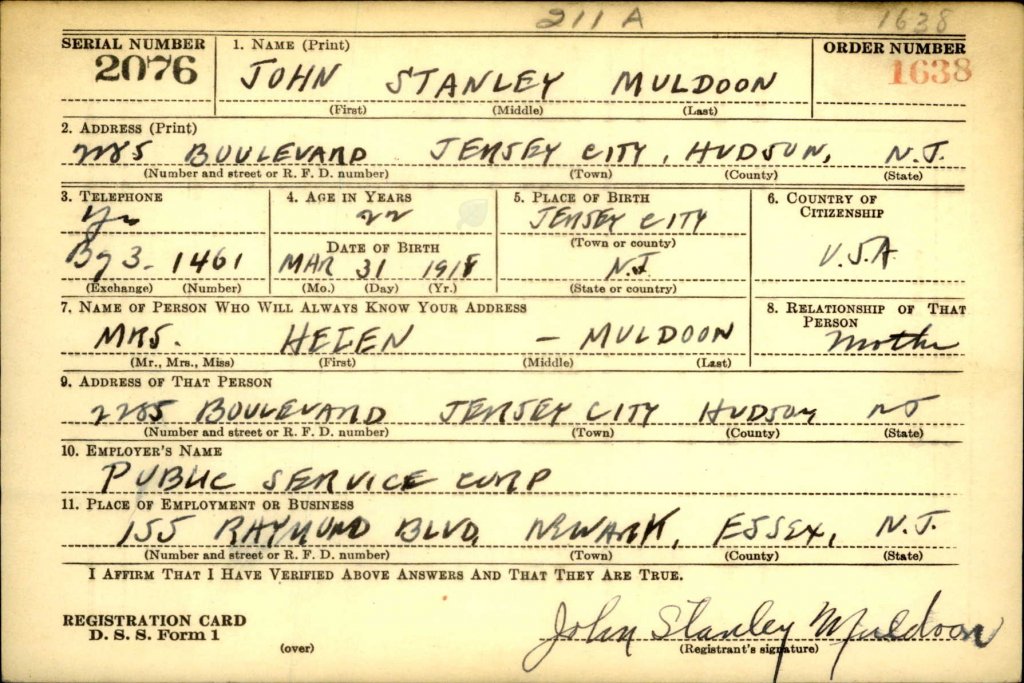 211 A 1638
SERIAL NUMBER 1. NAME (Print) ORDER NUMBER
2076 JOHN STANLEY MULDOON 1638
(First) (Middle) (Last)
2. ADDRESS (Print)
2285 BOULEVARD JERSEY CITY, HUDSON, N.J.
(Number and street or R. F. D. number) (Town) (County) (State)
3. TELEPHONE 4. AGE IN YEARS 5. PLACE OF BIRTH 6. COUNTRY OF
CITIZENSHIP
22 JERSEY CITY
DATE OF BIRTH (Town or county)
3- 1461 MAR 31 1918 N.J. U.S.A.
(Exchange) (Number) (Mo.) (Day) (Yr.) (State or country)
7. NAME OF PERSON WHO WILL ALWAYS KNOW YOUR ADDRESS 8. RELATIONSHIP OF THAT
PERSON
MRS. HELEN — MULDOON Mother
(Mr., Mrs., Miss) (First) (Middle) (Last)
9. ADDRESS OF THAT PERSON
2285 BOULEVARD JERSEY CITY HUDSON NJ
(Number and street or R. F. D. number) (Town) (County) (State)
10. EMPLOYER'S NAME
PUBLIC SERVICE CORP
11. PLACE OF EMPLOYMENT OR BUSINESS
155 RAYMOND BLVD, NEWARK, ESSEX, N.J.
(Number and street or R. F. D. number) (Town) (County) (State)
I AFFIRM THAT I HAVE VERIFIED ABOVE ANSWERS AND THAT THEY ARE TRUE.
REGISTRATION CARD
D. S. S. Form 1
John Stanley Muldoon
(over) (Registrant's signature)